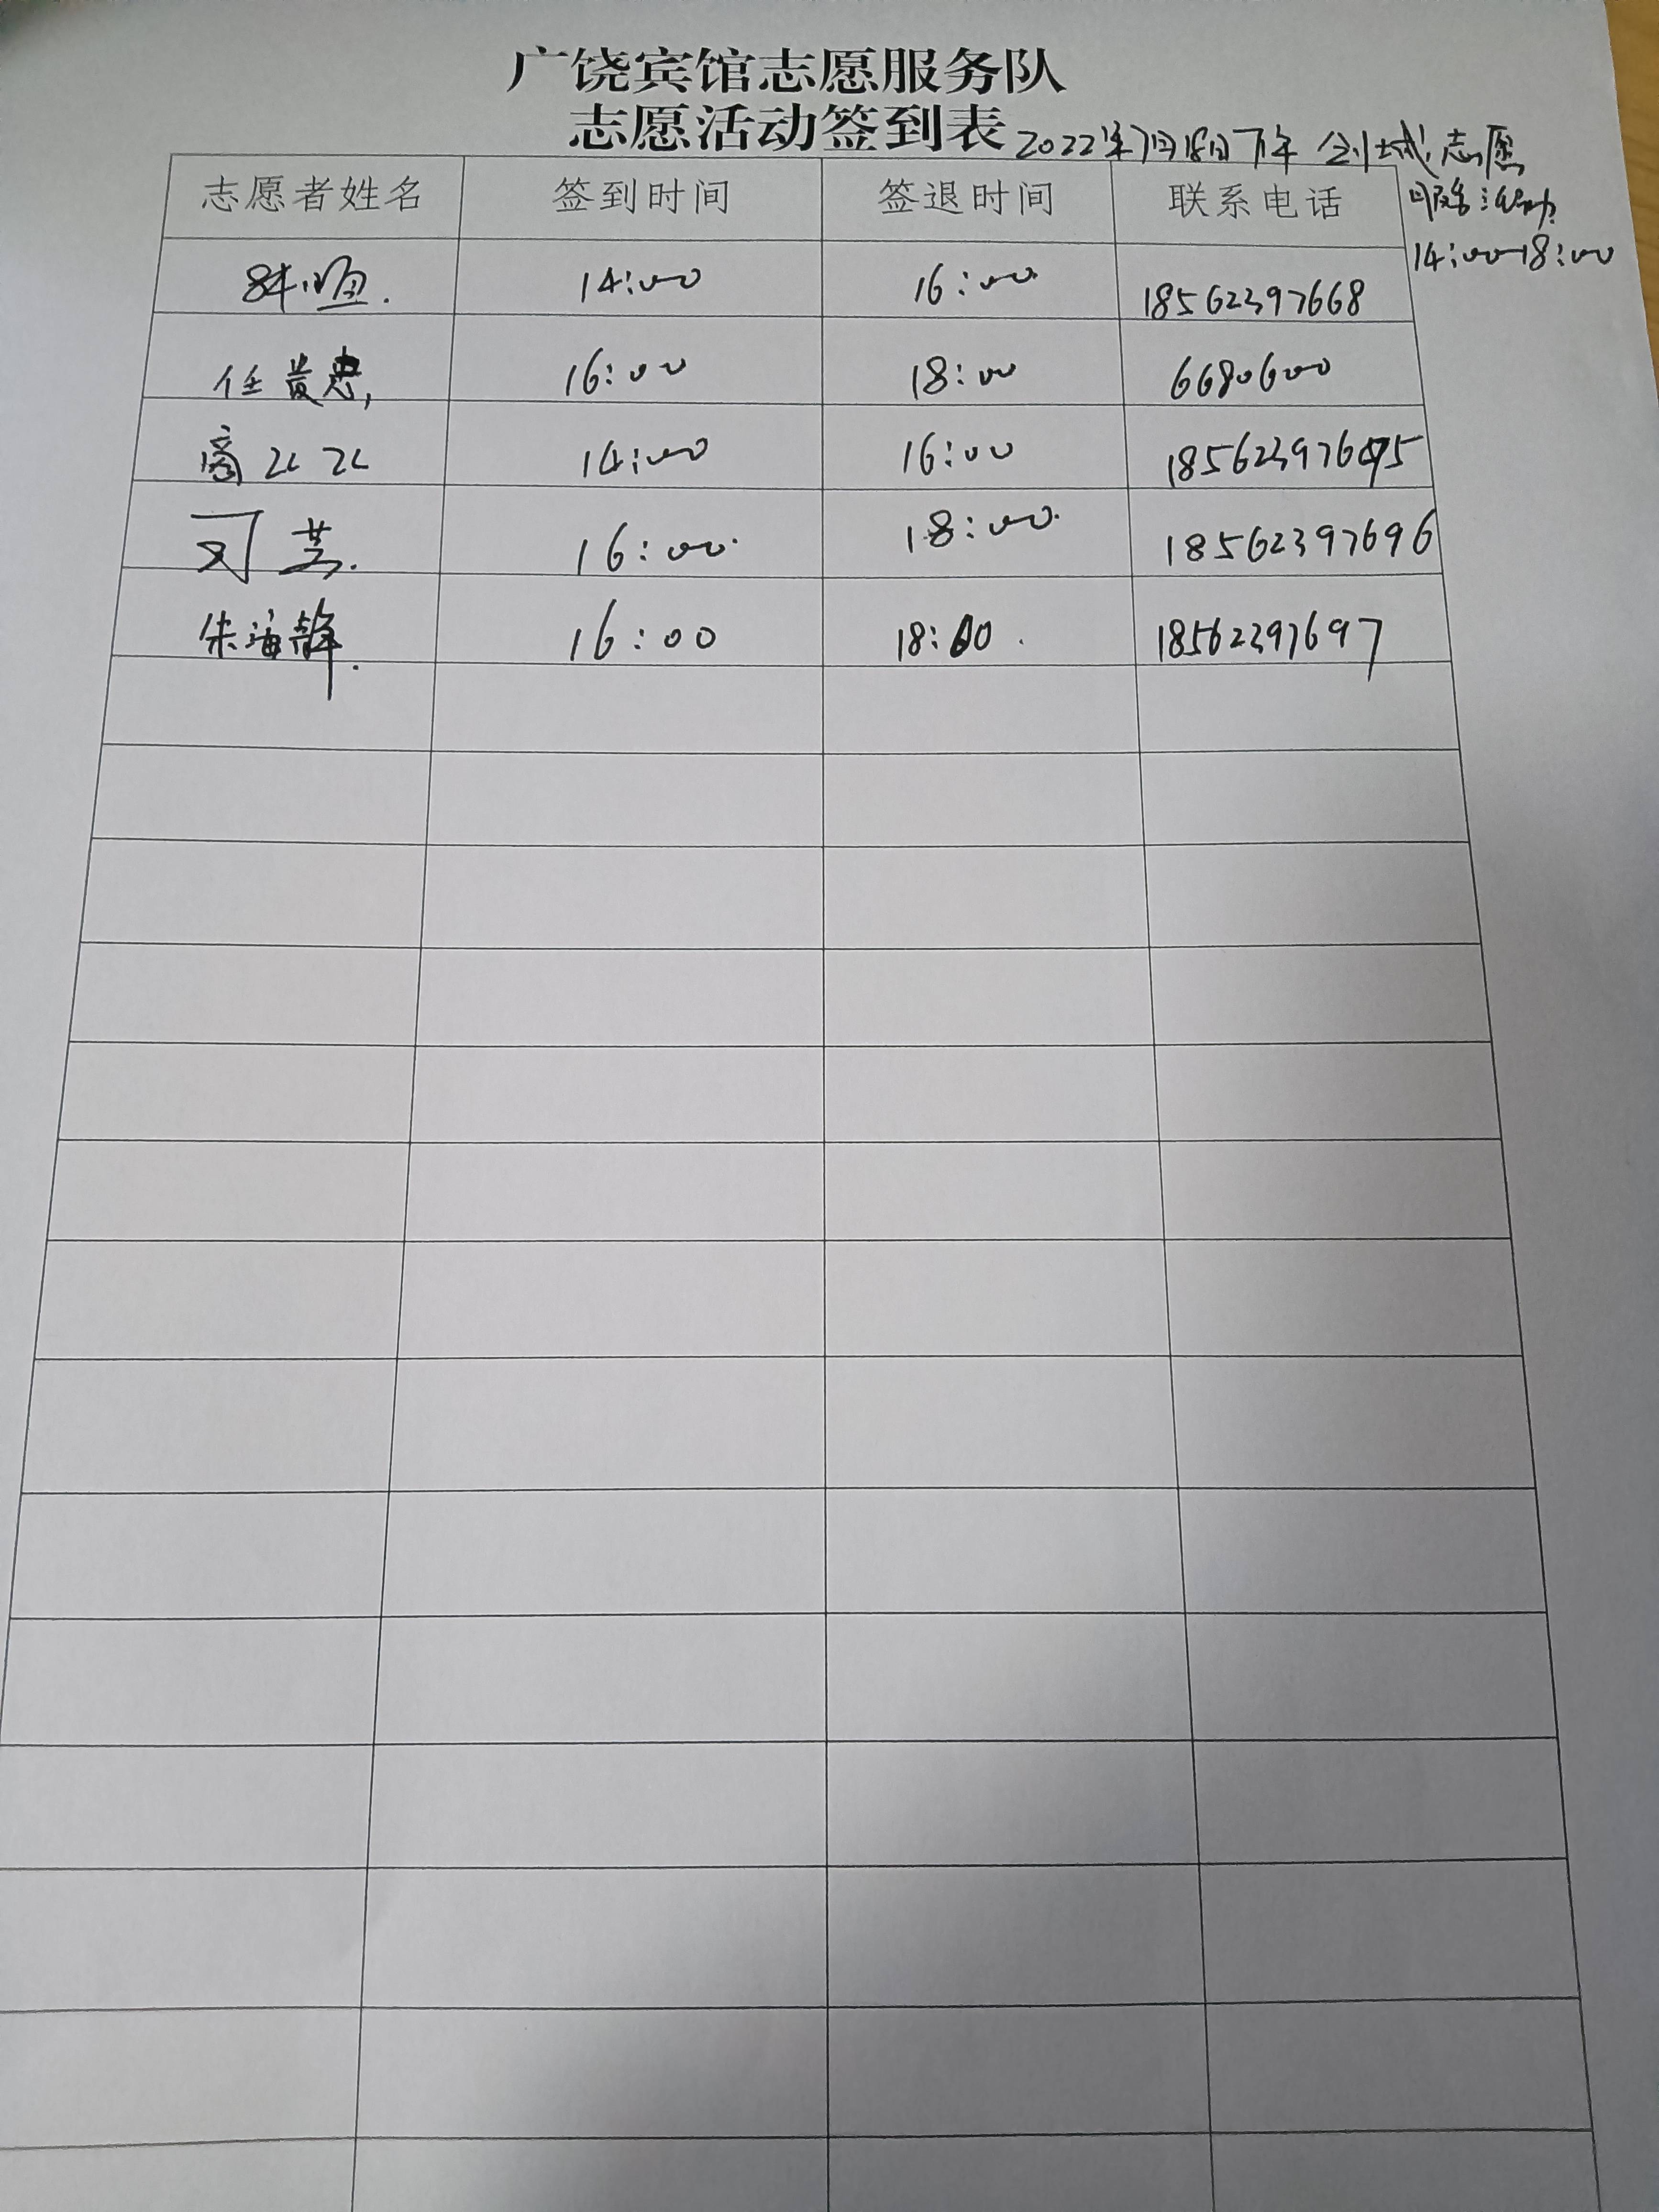 广饶宾馆志愿服务队
志愿活动签到表 2022年7月18日下午 创城志愿
服务活动
14:00-18:00
志愿者姓名 签到时间 签退时间 联系电话
14:00 16:00 18562397668
任贵忠 16:00 18:00 6680600
商 14:00 16:00 18562397675
16:00 18:00 18562397696
朱海峰 16:00 18:00 18562397697